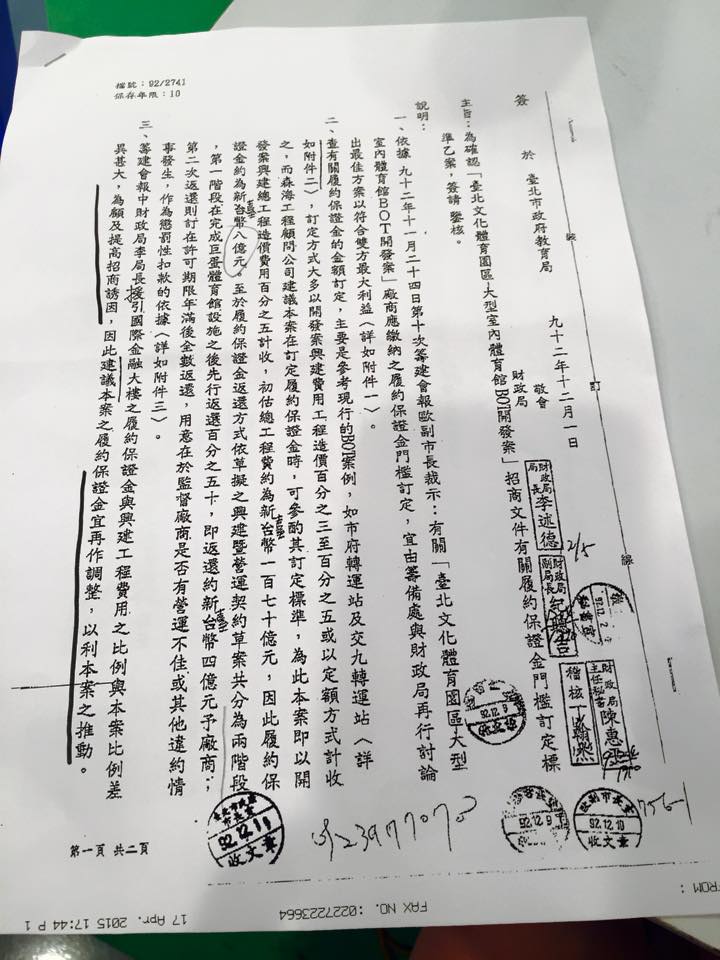 檔號：92/2741
保存年限：10
簽　於　臺北市政府教育局　九十二年十二月一日
敬會
財政局
主旨：為確認「臺北文化體育園區大型室內體育館BOT開發案」招商文件有關履約保證金門檻訂定標
準乙案，簽請 鑒核。
說明：
一、依據九十二年十一月二十四日第十次籌建會報歐副市長裁示：有關「臺北文化體育園區大型
室內體育館BOT開發案」廠商應繳納之履約保證金門檻訂定，宜由籌備處與財政局再行討論
出最佳方案以符合雙方最大利益（詳如附件一）。
二、查有關履約保證金的金額訂定，主要是參考現行的BOT案例，如市府轉運站及交九轉運站（詳
如附件二），訂定方式大多以開發案興建費用工程造價百分之三至百分之五或以定額方式計收
之，而森海工程顧問公司建議本案在訂定履約保證金時，可參酌其訂定標準，為此本案即以開
發案興建總工程造價費用百分之五計收，初估總工程費約為新台幣一百七十億元，因此履約保
證金約為新台幣八億元。至於履約保證金返還方式依草擬之興建暨營運契約草案共分為兩階段
，第一階段在完成巨蛋體育館設施之後先行返還百分之五十，即返還約新台幣四億元予廠商；
第二次返還則訂在許可期限年滿後全數返還，用意在於監督廠商是否有營運不佳或其他違約情
事發生，作為懲罰性扣款的依據（詳如附件三）。
三、籌建會報中財政局李局長援引國際金融大樓之履約保證金與興建工程費用之比例與本案比例差
異甚大，為顧及提高招商誘因，因此建議本案之履約保證金宜再作調整，以利本案之推動。
財政局
局長 李述德
2/5
財政局
副局長
財政局
主任秘書 陳惠
稽核
92.12.9
92.12.9
92.12.10
收文章
7561
92.12.11
收文章
23977070
第一頁 共二頁
裝
訂
線
FROM :
FAX NO. :0227223664
17 Apr. 2015 17:44 P 1